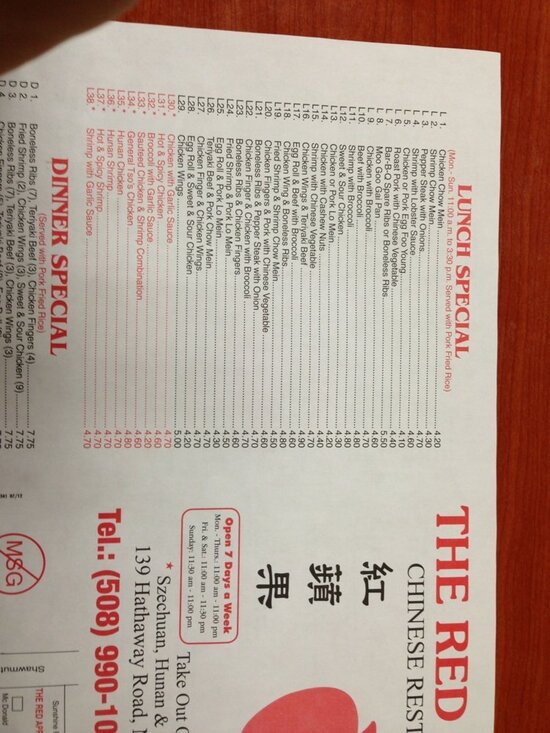 LUNCH SPECIAL
(Mon. - Sun. 11:00 a.m. to 3:30 p.m. Served with Pork Fried Rice)
L 1. Chicken Chow Mein 4.20
L 2. Shrimp Chow Mein 4.30
L 3. Pepper Steak with Onions 4.70
L 4. Shrimp with Lobster Sauce 4.60
L 5. Chicken or Pork Egg Foo Young 4.10
L 6. Roast Pork with Chinese Vegetable 4.40
L 7. Bar-B-Q Spare Ribs or Boneless Ribs 5.50
L 8. Moo Goo Gai Pan 4.60
L 9. Chicken with Broccoli 4.60
L10. Beef with Broccoli 4.80
L11. Shrimp with Broccoli 4.80
L12. Sweet & Sour Chicken 4.30
L13. Chicken or Pork Lo Mein 4.30
L14. Chicken with Cashew Nuts 4.40
L15. Shrimp with Chinese Vegetable 4.70
L16. Chicken Wings & Teriyaki Beef 4.90
L17. Egg Roll & Beef with Broccoli 4.60
L18. Chicken Wing & Boneless Ribs 4.80
L19. Fried Shrimp & Shrimp Chow Mein 4.50
L20. Chicken Finger & Pork with Chinese Vegetable 4.40
L21. Boneless Ribs & Pepper Steak with Onion 4.70
L22. Chicken Finger & Chicken with Broccoli 4.60
L23. Boneless Ribs & Chicken Fingers 4.60
L24. Fried Shrimp & Pork Lo Mein 4.50
L25. Egg Roll & Pork Lo Mein 4.30
L26. Teriyaki Beef & Pork Chow Mein 4.40
L27. Chicken Finger & Chicken Wings 4.70
L28. Egg Roll & Sweet & Sour Chicken 4.20
L29. Chicken Wings 5.00
L30.* Chicken with Garlic Sauce 4.70
L31.* Hot & Spicy Chicken 4.60
L32.* Broccoli with Garlic Sauce 4.20
L33. Seafood Chicken & Shrimp Combination 4.60
L34.* General Tso's Chicken 4.80
L35.* Hunan Chicken 4.60
L36.* Hunan Shrimp 4.70
L37.* Hot & Spicy Shrimp 4.70
L38.* Shrimp with Garlic Sauce 4.70
DINNER SPECIAL
(Served with Pork Fried Rice)
D 1. Boneless Ribs (7), Teriyaki Beef (3), Chicken Fingers (4) 7.75
D 2. Fried Shrimp (2), Chicken Wings (3), Sweet & Sour Chicken (9) 7.75
D 3. Boneless Ribs (7), Teriyaki Beef (3), Chicken Wings (3) 7.75
THE RED
CHINESE REST
紅
蘋
果
Open 7 Days a Week
Mon. - Thurs.: 11:00 am - 11:00 pm
Fri. & Sat.: 11:00 am - 11:30 pm
Sunday: 11:30 am - 11:00 pm
Take Out
* Szechuan, Hunan &
139 Hathaway Road,
Tel.: (508) 990-10
MSG
Shawmut
Sunshine
THE RED APP
Mc Donald